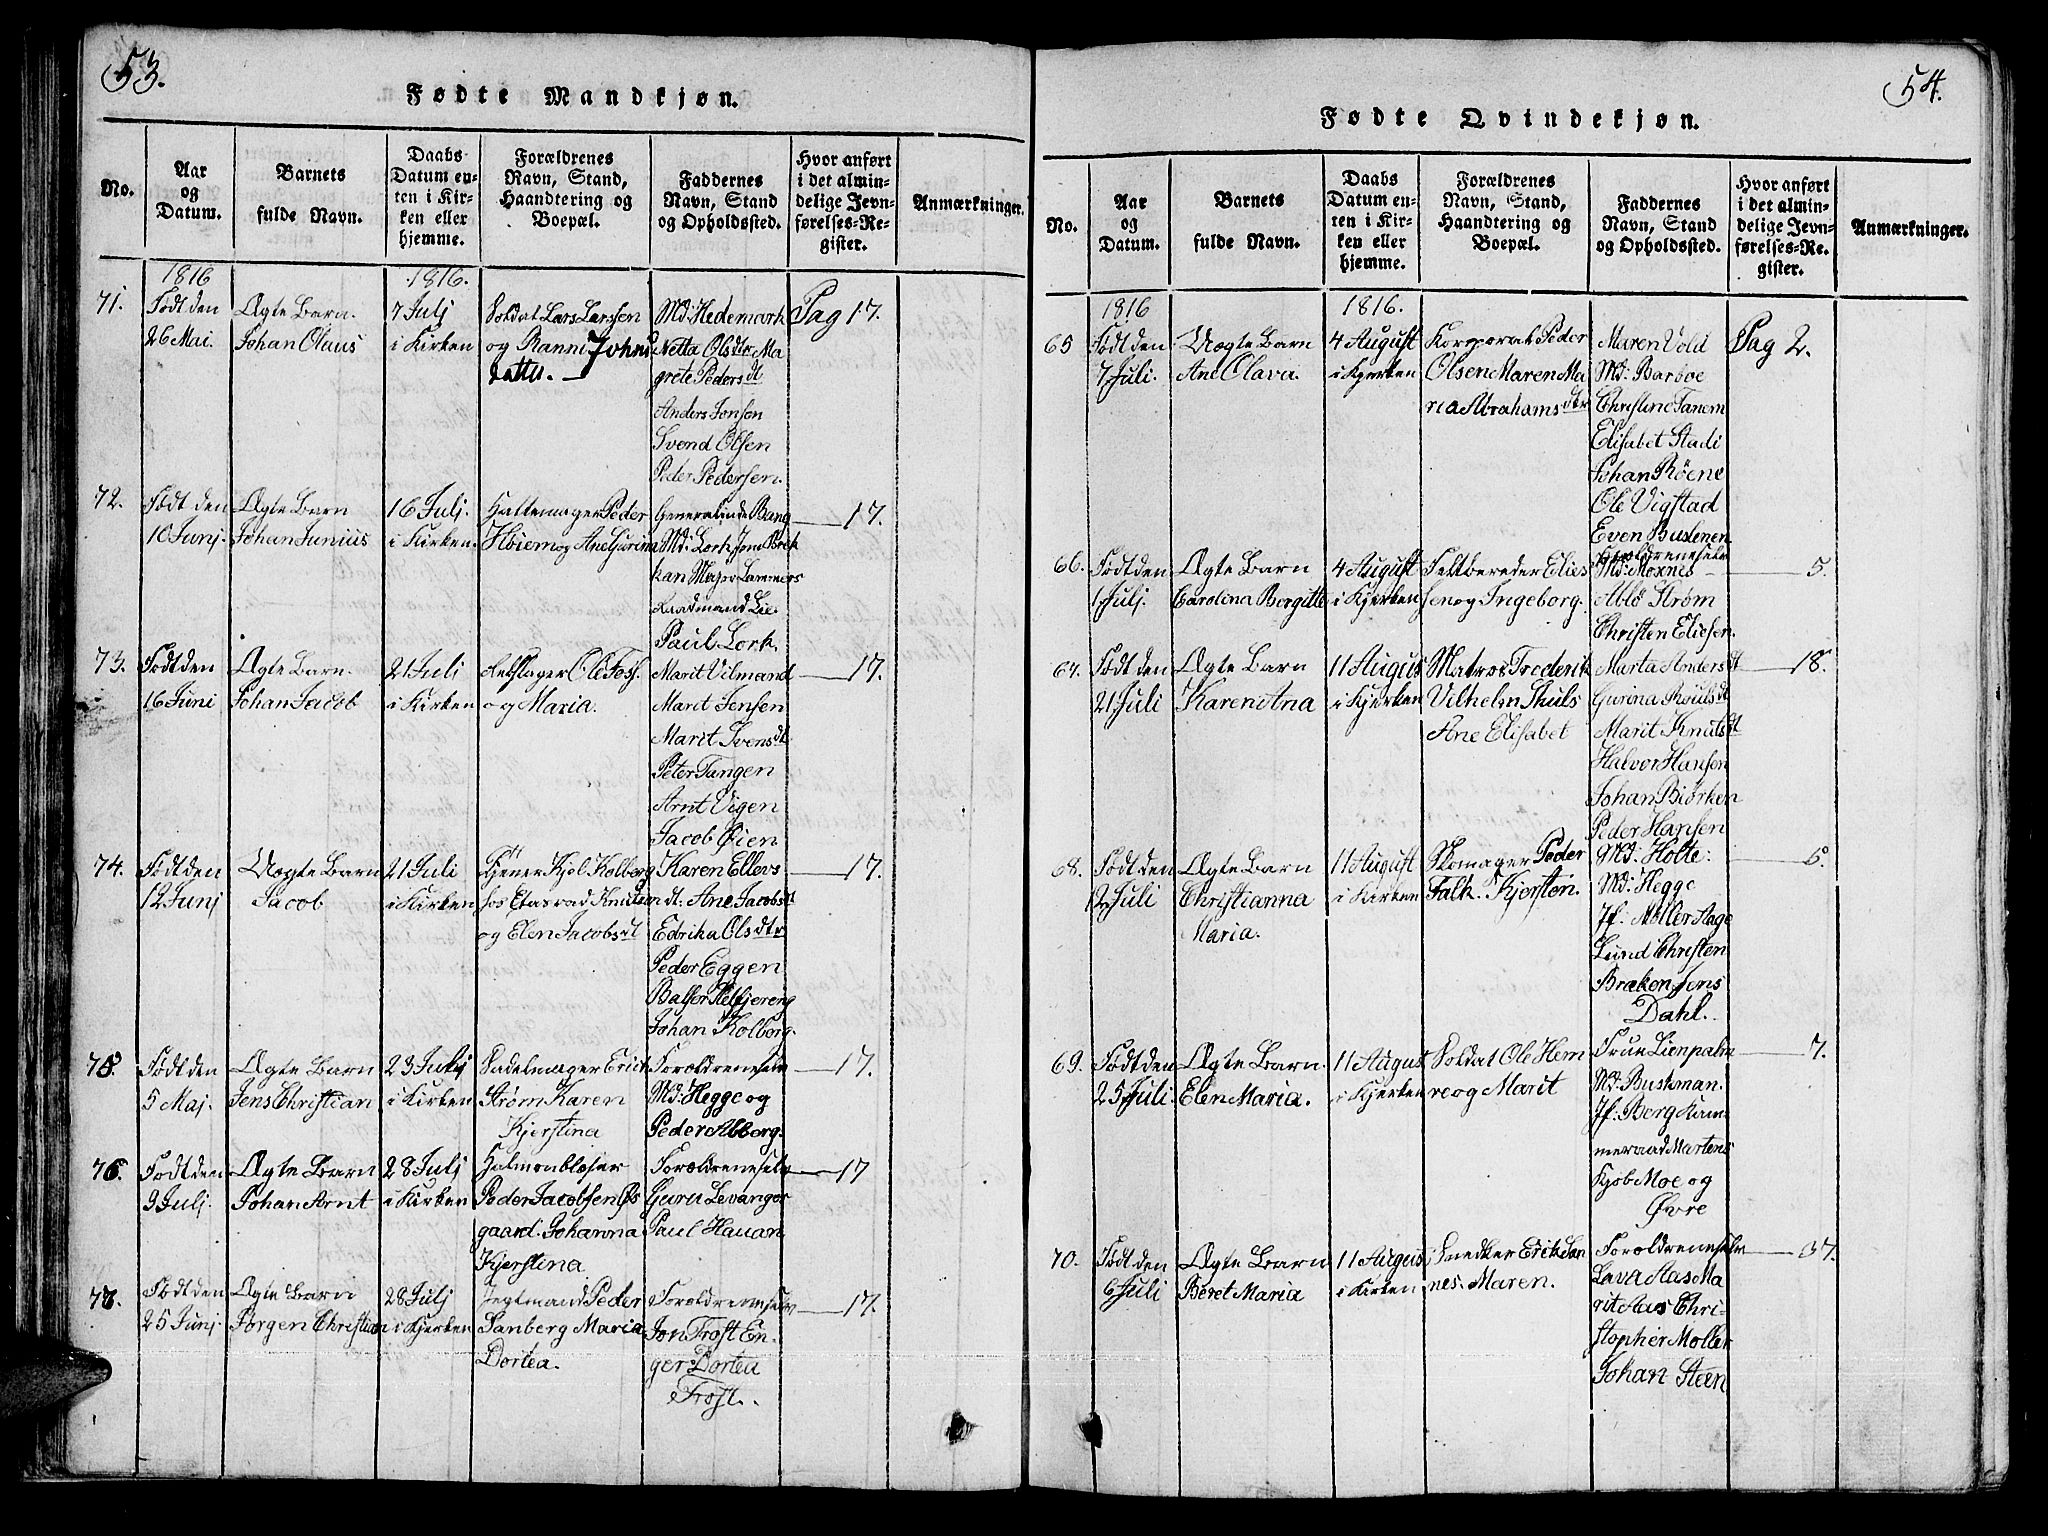 53.
Fødte Mandkjøn.
No.
Aar
og
Datum.
Barnets
fulde Navn.
Daabs
Datum en-
ten i Kir-
ken eller
hjemme.
Forældrenes
Navn, Stand,
Haandtering og
Boepæl.
Faddernes
Navn, Stand
og Opholdssted.
Hvor anført
i det almin-
delige Jevn-
førelses-Re-
gister.
Anmærkninger.
1816
1816.
71.
Født den
26 Mai.
Ægte Barn.
Johan Olaus
7 Julj
i Kirken
Soldat Lars Larssen
og Ranni Johns
datter.
Md: Hedemark
Netta Olsdtr Ma
grete Pedersdt
Anders Jonsen
Svend Olsen
Peder Pedersen.
Pag 17.
72.
Født den
10 Junj.
Ægte Barn
Johan Junius
16 Julj.
i Kirken.
Hattemager Peder
Høiem og Ane Gurina
Generalinde Bang
Md: Lork Jens Brek
kan Major Lammers
Raadmand Lie.
Paul Lork.
17.
73.
Født den
16 Juni
Ægte Barn.
Johan Jacob
21 Juli
i Kirken
Rebslager Ole Foss.
og Maria.
Marit Vilmand
Marit Jensen
Marit Svensdt.
Peter Tangen
Arnt Vigen
Jacob Øien
17.
74.
Født den
12 Junj
Uægte Barn
Jacob
21 Juli
i Kirken
Tjener Kjel Kolberg
hos Etasraad Knutzen
og Elen Jacobsdt
Karen Ellevs
dt. Ane Jacobsdt
Edrika Olsdtr
Peder Eggen
Balser Refjereng
Johan Kolberg.
17.
75.
Født den
5 Maj.
Ægte Barn
Jens Christian
23 Julj
i Kirken
Sadelmager Erick
Strøm Karen
Kjerstina
Foroldrene selv
Md: Hegge og
Peder Alborg.
17.
76.
Født den
9 Julj.
Ægte Barn
Johan Arnt
28 Julj
i Kirken
Halmonblæser
Peder Jacobsen Øs
gaard. Johanna
Kjerstina
Foroldrene selv
Guru Levanger
Paul Hauan
17
77.
Født den
25 Junj.
Ægte Barn
Jørgen Christian
28 Julj
i Kjerken
Jegtmand Peder
Sanberg Maria
Dortea.
Foroldrene selv
Jon Frost En-
ger Dortea
Frost.
17.
54.
Fødte Qvindekjøn.
No.
Aar
og
Datum.
Barnets
fulde Navn.
Daabs
Datum en-
ten i Kir-
ken eller
hjemme.
Forældrenes
Navn, Stand,
Haandtering og
Boepæl.
Faddernes
Navn, Stand
og Opholdssted.
Hvor anført
i det almin-
delige Jevn-
førelses-Re-
gister.
Anmærkninger.
1816
1816.
65
Født den
7 Juli.
Uægte Barn
Ane Olava.
4 August
i Kjerken
Korporal Peder
Olsen Maren Ma
ria Abrahamsdtr
Maren Vold
Md: Barboe
Christine Tanem
Elisabet Stadi
Johan Röene
Ole Vigstad
Even Buslenen
Pag 2.
66.
Født den
1 Julj.
Ægte Barn
Carolina Bergitte
4 August
i Kjerken
Feltbereder Elies
sen og Ingeborg.
Foroldrene selv
Md: Moxnes
Ablø Strøm
Christen Eliesen.
5.
67.
Født den
21 Juli
Ægte Barn
Karen Ana
11 Augus
i Kjerken
Matros Frederik
Vilhelm Skuls
Ane Elisabet
Marta Andersdt
Gurina Roulsdt
Marit Knutsdt
Halvor Hansen
Johan Biørken
Peder Hansen
18.
68.
Født den
12 Juli
Ægte Barn
Christianna
Maria.
11 August
i Kirken
Skomager Peder
Falk. Kjersten.
Md: Holte:
Md: Hegge
Jf: Møller Aage
Lund Christen
Bræken Jens
Dahl.
5.
69.
Født den
25 Juli.
Ægte Barn.
Elen Maria.
11 Augus
i Kjerken
Soldat Ole Hem
re og Marit
Frue Lienpalm
Md: Buskman.
Jf: Berg Kam-
meraad Martens
Kjøb Moe og
Øvre
7.
70.
Født den
6 Juli
Ægte Barn
Beret Maria
11 Augus
i Kirken
Snedker Erik San
nes. Maren.
Foroldrene selv
Lava Aas Ma
rit Aas Chri-
stopher Møller
Johan Steen
37.